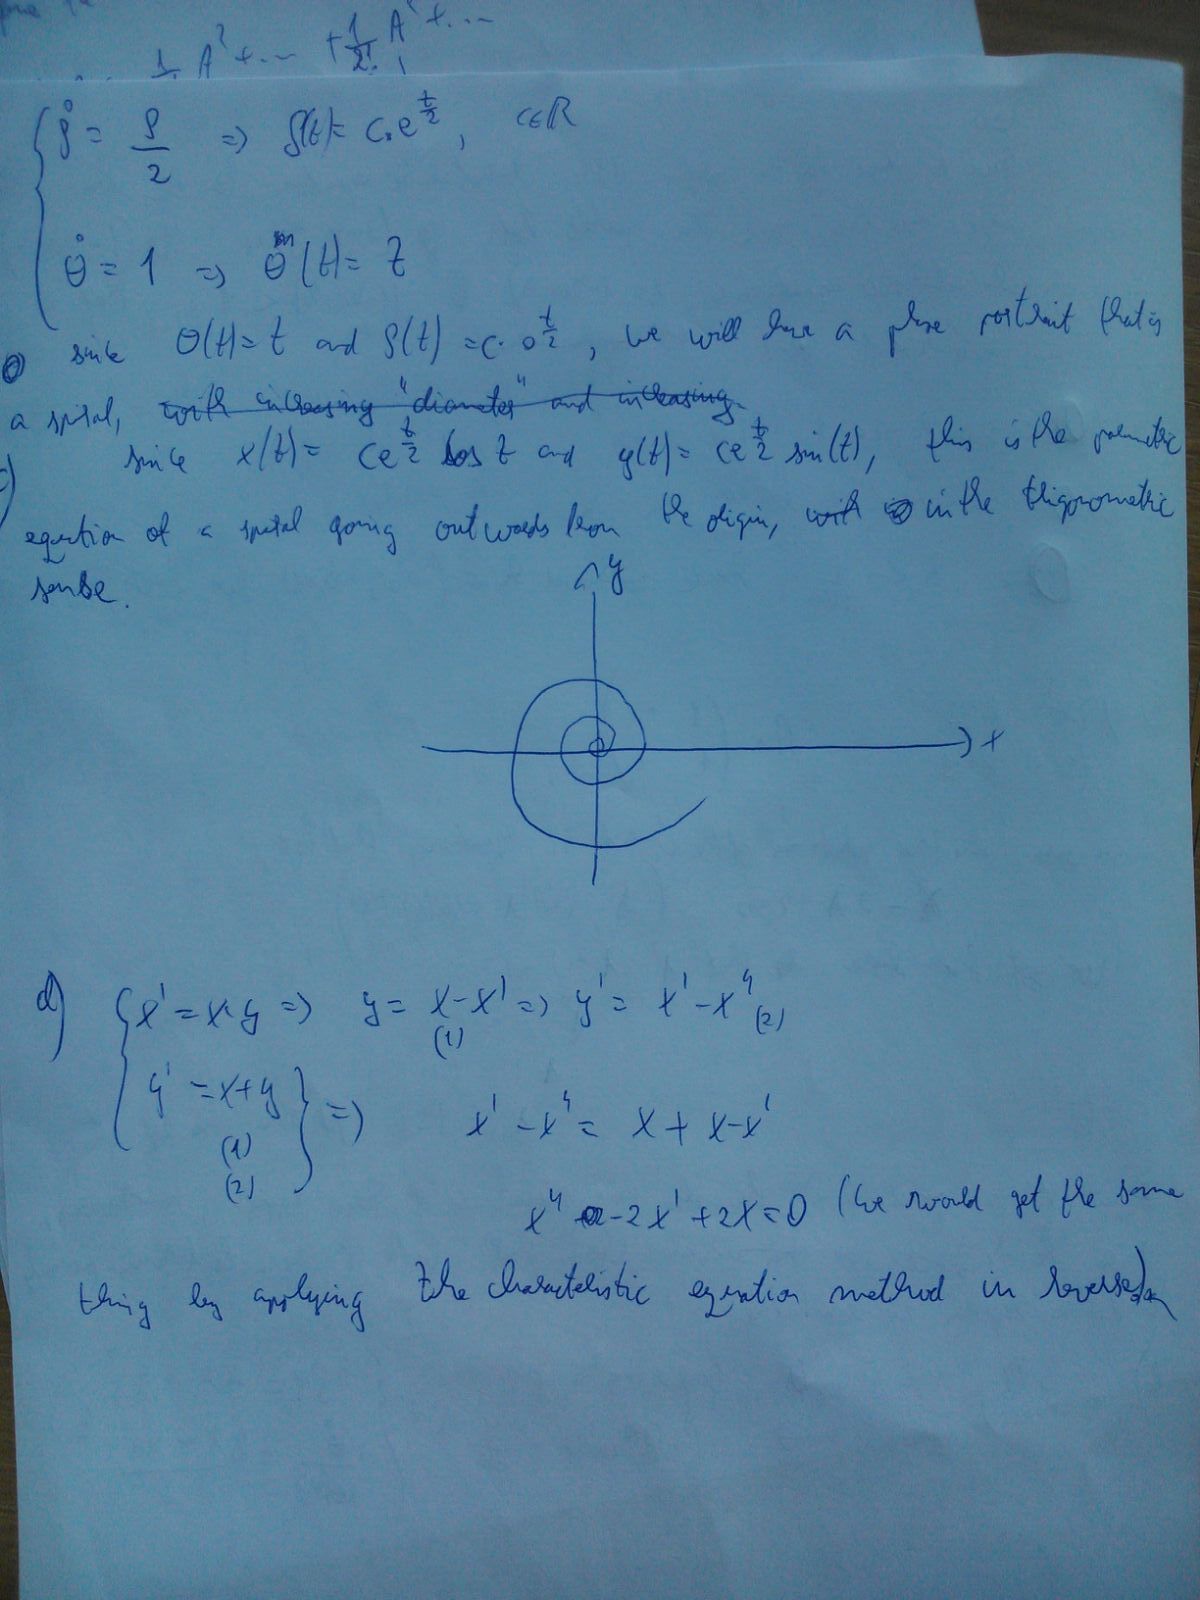 1/2! A² + ... + 1/2! A² + ...
ρ̇ = ρ/2 => ρ(t) = c.e^{t/2}, c∈ℝ
θ̇ = 1 => θ(t) = t
since θ(t) = t and ρ(t) = c.e^{t/2}, we will have a phase portrait that is
a spiral, with increasing "diameter" and increasing
c) since x(t) = ce^{t/2} cos t and y(t) = ce^{t/2} sin(t), this is the parametric
equation of a spiral going outwards from the origin, with in the trigonometric
sense.
y
x
d) { x' = x-y => y = x-x' => y' = x'-x'' (2)
(1)
y' = x+y } => x' - x'' = x + x-x'
(1)
(2)
x'' -2x' +2x=0 (we would get the same
thing by applying the characteristic equation method in reverse)